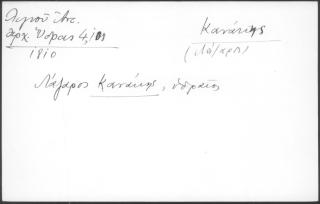 Λιγνοῦ Ἀντ.
Ἀρχ. Ὕδρας 4, 101
1810
Κανάκης
(Λάζαρος)
Λάζαρος Κανάκης, υδραῖος